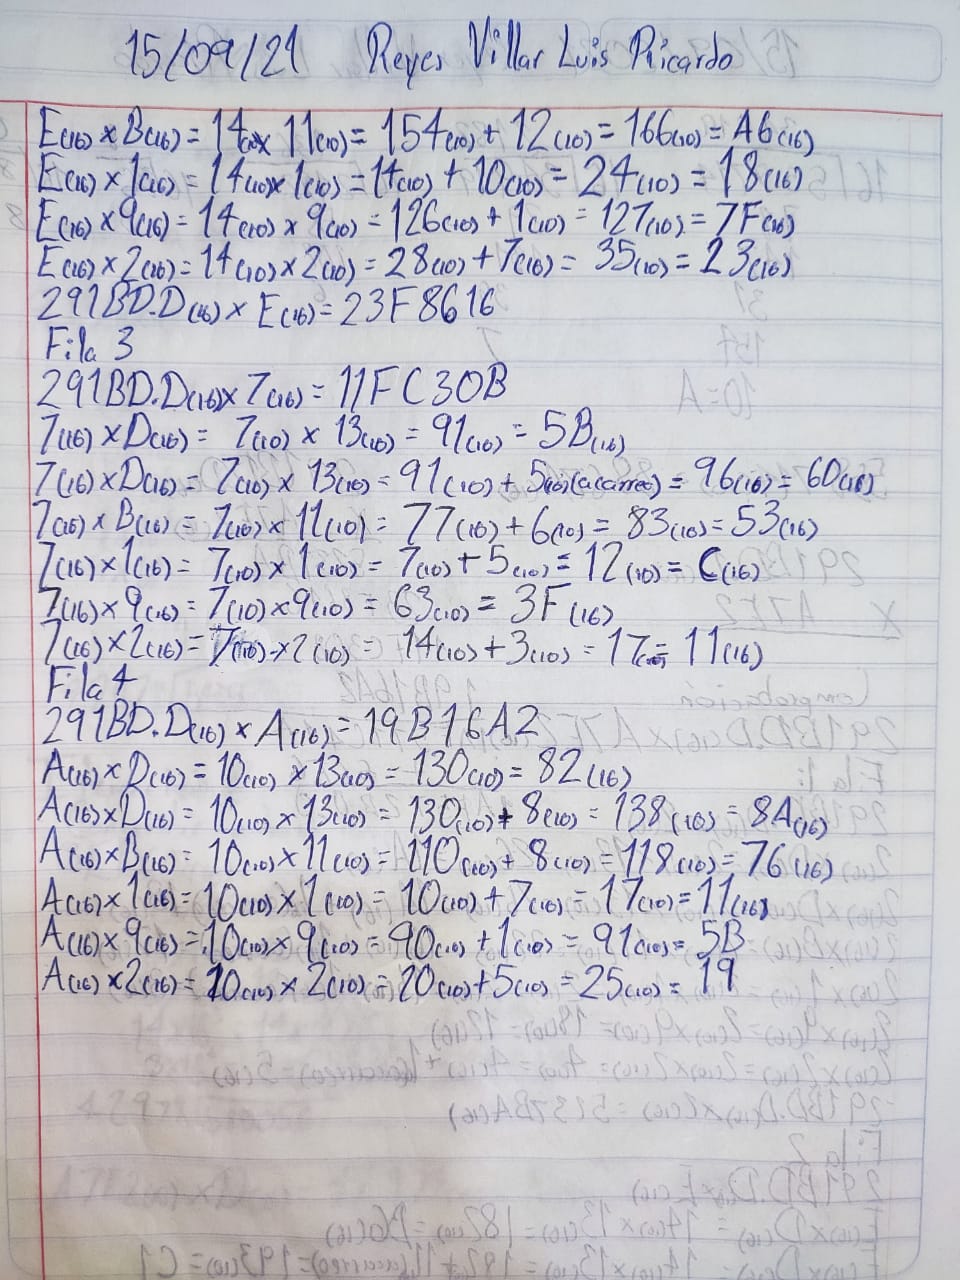 15/09/21 Reyes Villar Luis Ricardo
E(16) x B(16) = 14(10)x 11(10) = 154(10) + 12(10) = 166(10) = A6(16)
E(16) x 1(16) = 14(10)x1(10) = 14(10) + 10(10) = 24(10) = 18(16)
E(16) x 9(16) = 14(10) x 9(10) = 126(10) + 1(10) = 127(10) = 7F(16)
E(16) x 2(16) = 14(10) x 2(10) = 28(10) + 7(10) = 35(10) = 23(16)
291BD.D(16) x E(16) = 23F8616
Fila 3
291BD.D(16) x 7(16) = 11FC30B
7(16) x D(16) = 7(10) x 13(10) = 91(10) = 5B(16)
7(16) x D(16) = 7(10) x 13(10) = 91(10) + 5(10)(acarreo) = 96(10) = 60(16)
7(16) x B(16) = 7(10) x 11(10) = 77(10) + 6(10) = 83(10) = 53(16)
7(16) x 1(16) = 7(10) x 1(10) = 7(10) + 5(10) = 12(10) = C(16)
7(16) x 9(16) = 7(10) x 9(10) = 63(10) = 3F(16)
7(16) x 2(16) = 7(10) x 2(10) = 14(10) + 3(10) = 17(10) = 11(16)
Fila 4
291BD.D(16) x A(16) = 19B16A2
A(16) x D(16) = 10(10) x 13(10) = 130(10) = 82(16)
A(16) x D(16) = 10(10) x 13(10) = 130(10) + 8(10) = 138(10) = 8A(16)
A(16) x B(16) = 10(10) x 11(10) = 110(10) + 8(10) = 118(10) = 76(16)
A(16) x 1(16) = 10(10) x 1(10) = 10(10) + 7(10) = 17(10) = 11(16)
A(16) x 9(16) = 10(10) x 9(10) = 90(10) + 1(10) = 91(10) = 5B
A(16) x 2(16) = 10(10) x 2(10) = 20(10) + 5(10) = 25(10) = 19